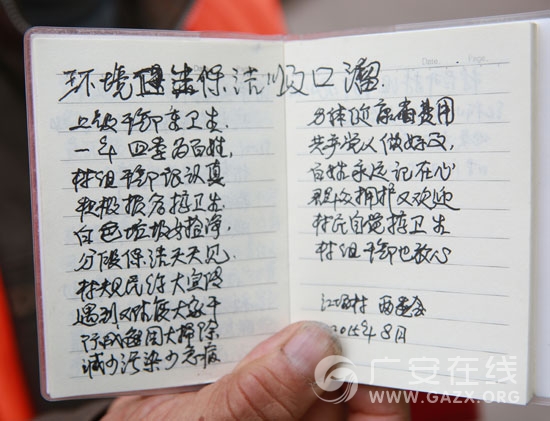 Date. Page.
环境卫生保洁顺口溜.
上级干部 卫生.
一年四季为百姓,
村组干部很认真
积极报名搞卫生
白色垃圾 捡净,
分段保洁天天见.
村规民约大宣传
遇到 大家干
每周大扫除
减少污染少患病
身体健康省费用
共产党人做好事,
百姓永远记在心
群众拥护又欢迎
村民自觉搞卫生
村组干部也放心
江 村 两委会
2015年8月
广安在线
WWW.GAZX.ORG